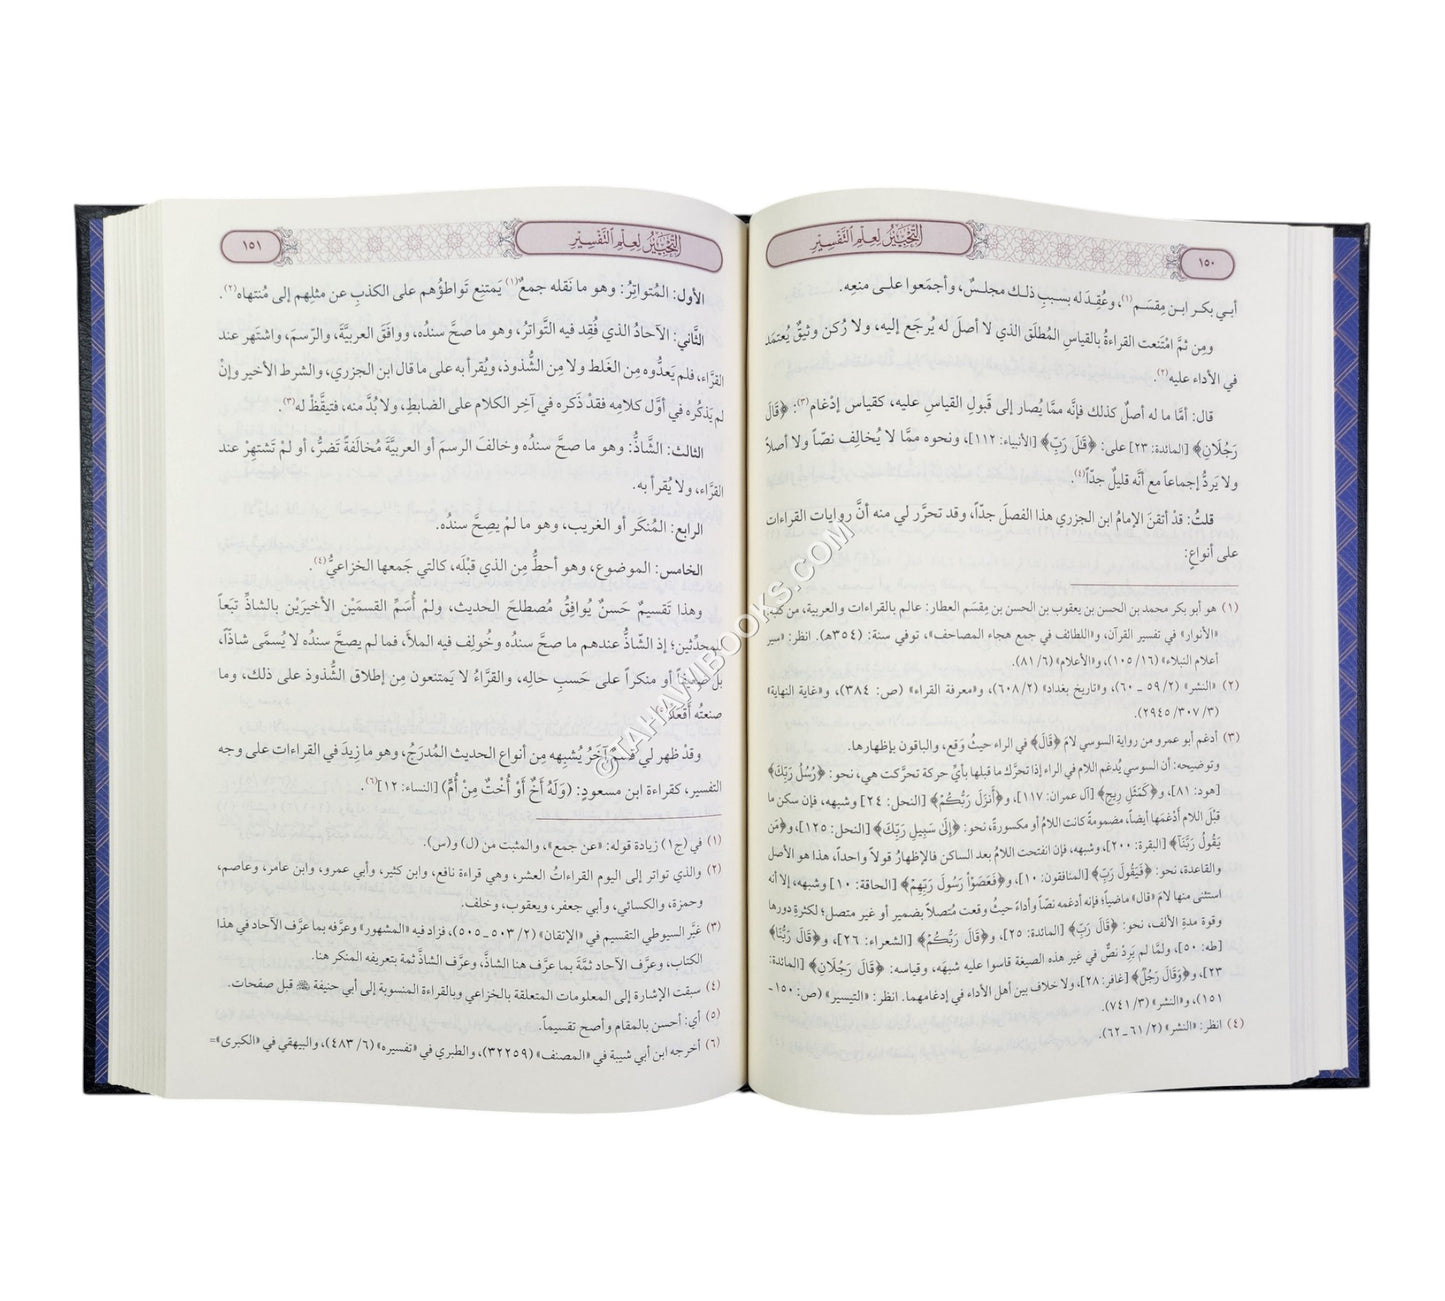 ١٥٠
التحبير لعلم التفسير
أبي بكر ابن مِقسَم(١)، وعُقِد له بسببِ ذلك مجلسٌ، وأجمَعوا على منعِه.
ومِن ثمَّ امْتَنعت القراءةُ بالقياسِ المُطلَق الذي لا أصلَ له يُرجَع إليه، ولا رُكن وثيقٌ يُعتمَد
في الأداء عليه(٢).
قال: أمَّا ما له أصلٌ كذلك فإنَّه ممَّا يُصار إلى قَبولِ القياسِ عليه، كقياس إدْغام(٣): ﴿قَالَ
رَجُلَانِ﴾ [المائدة: ٢٣] على: ﴿قَٰلَ رَبِّ﴾ [الأنبياء: ١١٢]، ونحوه ممَّا لا يُخالِف نصّاً ولا أصلاً
ولا يَردُّ إجماعاً مع أنَّه قليلٌ جدّاً(٤).
قلتُ: قدْ أتقنَ الإمامُ ابن الجزري هذا الفصلَ جدّاً، وقد تحرَّر لي منه أنَّ روايات القراءات
على أنواعٍ:
(١) هو أبو بكر محمد بن الحسن بن يعقوب بن الحسن بن مِقسَم العطار: عالم بالقراءات والعربية، من كتبه:
«الأنوار» في تفسير القرآن، و«اللطائف في جمع هجاء المصاحف»، توفي سنة: (٣٥٤هـ). انظر: «سير
أعلام النبلاء» (١٦/ ١٠٥)، و«الأعلام» (٦/ ٨١).
(٢) «النشر» (٢/ ٥٩ ـ ٦٠)، و«تاريخ بغداد» (٢/ ٦٠٨)، و«معرفة القراء» (ص: ٣٨٤)، و«غاية النهاية»
(٣/ ٣٠٧/ ٢٩٤٥).
(٣) أدغم أبو عمرو من رواية السوسي لامَ ﴿قَالَ﴾ في الراء حيثُ وَقع، والباقون بإظهارها.
وتوضيحه: أن السوسي يُدغم اللام في الراء إذا تحرَّك ما قبلها بأيِّ حركة تحرَّكت هي، نحو: ﴿رُسُلُ رَبِّكَ﴾
[هود: ٨١]، و﴿كَمَثَلِ رِيحٍ﴾ [آل عمران: ١١٧]، و﴿أَنزَلَ رَبُّكُمْ﴾ [النحل: ٢٤] وشبهه، فإن سكن ما
قبْلَ اللام أَدْغَمَها أيضاً، مضمومةً كانت اللامُ أو مكسورةً، نحو: ﴿إِلَى سَبِيلِ رَبِّكَ﴾ [النحل: ١٢٥]، و﴿مَن
يَقُولُ رَبَّنَآ﴾ [البقرة: ٢٠٠]، وشبهه، فإن انفتحت اللامُ بعد الساكن فالإظهارُ قولاً واحداً، هذا هو الأصل
والقاعدة، نحو: ﴿فَيَقُولَ رَبِّ﴾ [المنافقون: ١٠]، و﴿فَعَصَوْاْ رَسُولَ رَبِّهِمْ﴾ [الحاقة: ١٠] وشبهه، إلا أنه
استثنى منها لامَ «قال» ماضياً؛ فإنه أدغمه نصّاً وأداءً حيثُ وقعت مُتصلاً بضمير أو غير متصل؛ لكثرةِ دورها
وقوة مدةِ الألف، نحو: ﴿قَالَ رَبِّ﴾ [المائدة: ٢٥]، و﴿قَالَ رَبُّكُمْ﴾ [الشعراء: ٢٦]، و﴿قَالَ رَبُّنَا﴾
[طه: ٥٠]، ولمَّا لم يَردْ نصٌّ في غير هذه الصيغة قاسوا عليه شبهَه، وقياسه: ﴿قَالَ رَجُلَانِ﴾ [المائدة:
٢٣]، و﴿وَقَالَ رَجُلٌ﴾ [غافر: ٢٨]، ولا خلاف بين أهل الأداء في إدغامهما. انظر: «التيسير» (ص: ١٥٠ ـ
١٥١)، و«النشر» (٣/ ٧٤١).
(٤) انظر: «النشر» (٢/ ٦١ ـ ٦٢).
التحبير لعلم التفسير
١٥١
الأول: المُتواتِرُ: وهو ما نَقله جمعٌ(١) يَمتنِع تَواطؤُهم على الكذبِ عن مثلِهم إلى مُنتهاه(٢).
الثَّاني: الآحادُ الذي فُقِد فيه التَّواترُ، وهو ما صحَّ سندُه، ووافَقَ العربيَّةَ، والرّسمَ، واشتَهر عند
القرَّاء، فلم يَعدُّوه مِن الغَلط ولا مِن الشُّذوذ، ويُقرأ به على ما قال ابن الجزري، والشرط الأخير وإنْ
لم يَذكُره في أوَّل كلامِه فقدْ ذَكره في آخِر الكلام على الضابطِ، ولا بُدَّ منه، فتيقَّظْ له(٣).
الثالث: الشَّاذُّ: وهو ما صحَّ سندُه وخالفَ الرسمَ أو العربيَّةَ مُخالَفةً تَضرُّ، أو لمْ تَشتهِرْ عند
القرَّاء، ولا يُقرأ به.
الرابع: المُنكَر أو الغريب، وهو ما لمْ يصِحَّ سندُه.
الخامس: الموضوع، وهو أحطُّ مِن الذي قبْلَه، كالتي جَمعها الخزاعيُّ(٤).
وهذا تَقسيمٌ حَسنٌ يُوافِقُ مُصطلحَ الحديث، ولمْ أُسَمِّ القسمَيْن الأخيرَيْن بالشاذِّ تبَعاً
للمحدِّثين؛ إذ الشّاذُّ عندهم ما صحَّ سندُه وخُولِف فيه الملأَ، فما لم يصحَّ سندُه لا يُسمَّى شاذّاً،
بل ضعيفاً أو منكراً على حَسبِ حالِه، والقرَّاءُ لا يَمتنعون مِن إطلاق الشُّذوذ على ذلك، وما
صنعتُه أَقعَدُ
وقدْ ظهر لي قسمٌ آخَرُ يُشبِهه مِن أنواع الحديث المُدرَجُ، وهو ما زِيدَ في القراءات على وجه
التفسير، كقراءة ابن مسعودٍ: (وَلَهُ أَخٌ أَوْ أُخْتٌ مِنْ أُمٍّ) [النساء: ١٢](٦).
(١) في (ج١) زيادة قوله: «عن جمع»، والمثبت من (ل) و(س).
(٢) والذي تواتر إلى اليوم القراءاتُ العشر، وهي قراءة نافع، وابن كثير، وأبي عمرو، وابن عامر، وعاصم،
وحمزة، والكسائي، وأبي جعفر، ويعقوب، وخلف.
(٣) غيَّر السيوطي التقسيم في «الإتقان» (٢/ ٥٠٣ ـ ٥٠٥)، فزاد فيه «المشهور» وعرَّفه بما عرَّف الآحاد في هذا
الكتاب، وعرَّف الآحاد ثمَّةَ بما عرَّف هنا الشاذَّ، وعرَّف الشاذَّ ثمة بتعريفه المنكر هنا.
(٤) سبقت الإشارة إلى المعلومات المتعلقة بالخزاعي وبالقراءة المنسوبة إلى أبي حنيفة قبل صفحات.
(٥) أي: أحسن بالمقام وأصح تقسيماً.
(٦) أخرجه ابن أبي شيبة في «المصنف» (٣٢٢٥٩)، والطبري في «تفسيره» (٦/ ٤٨٣)، والبيهقي في «الكبرى»=
©TAHAWIBOOKS.COM